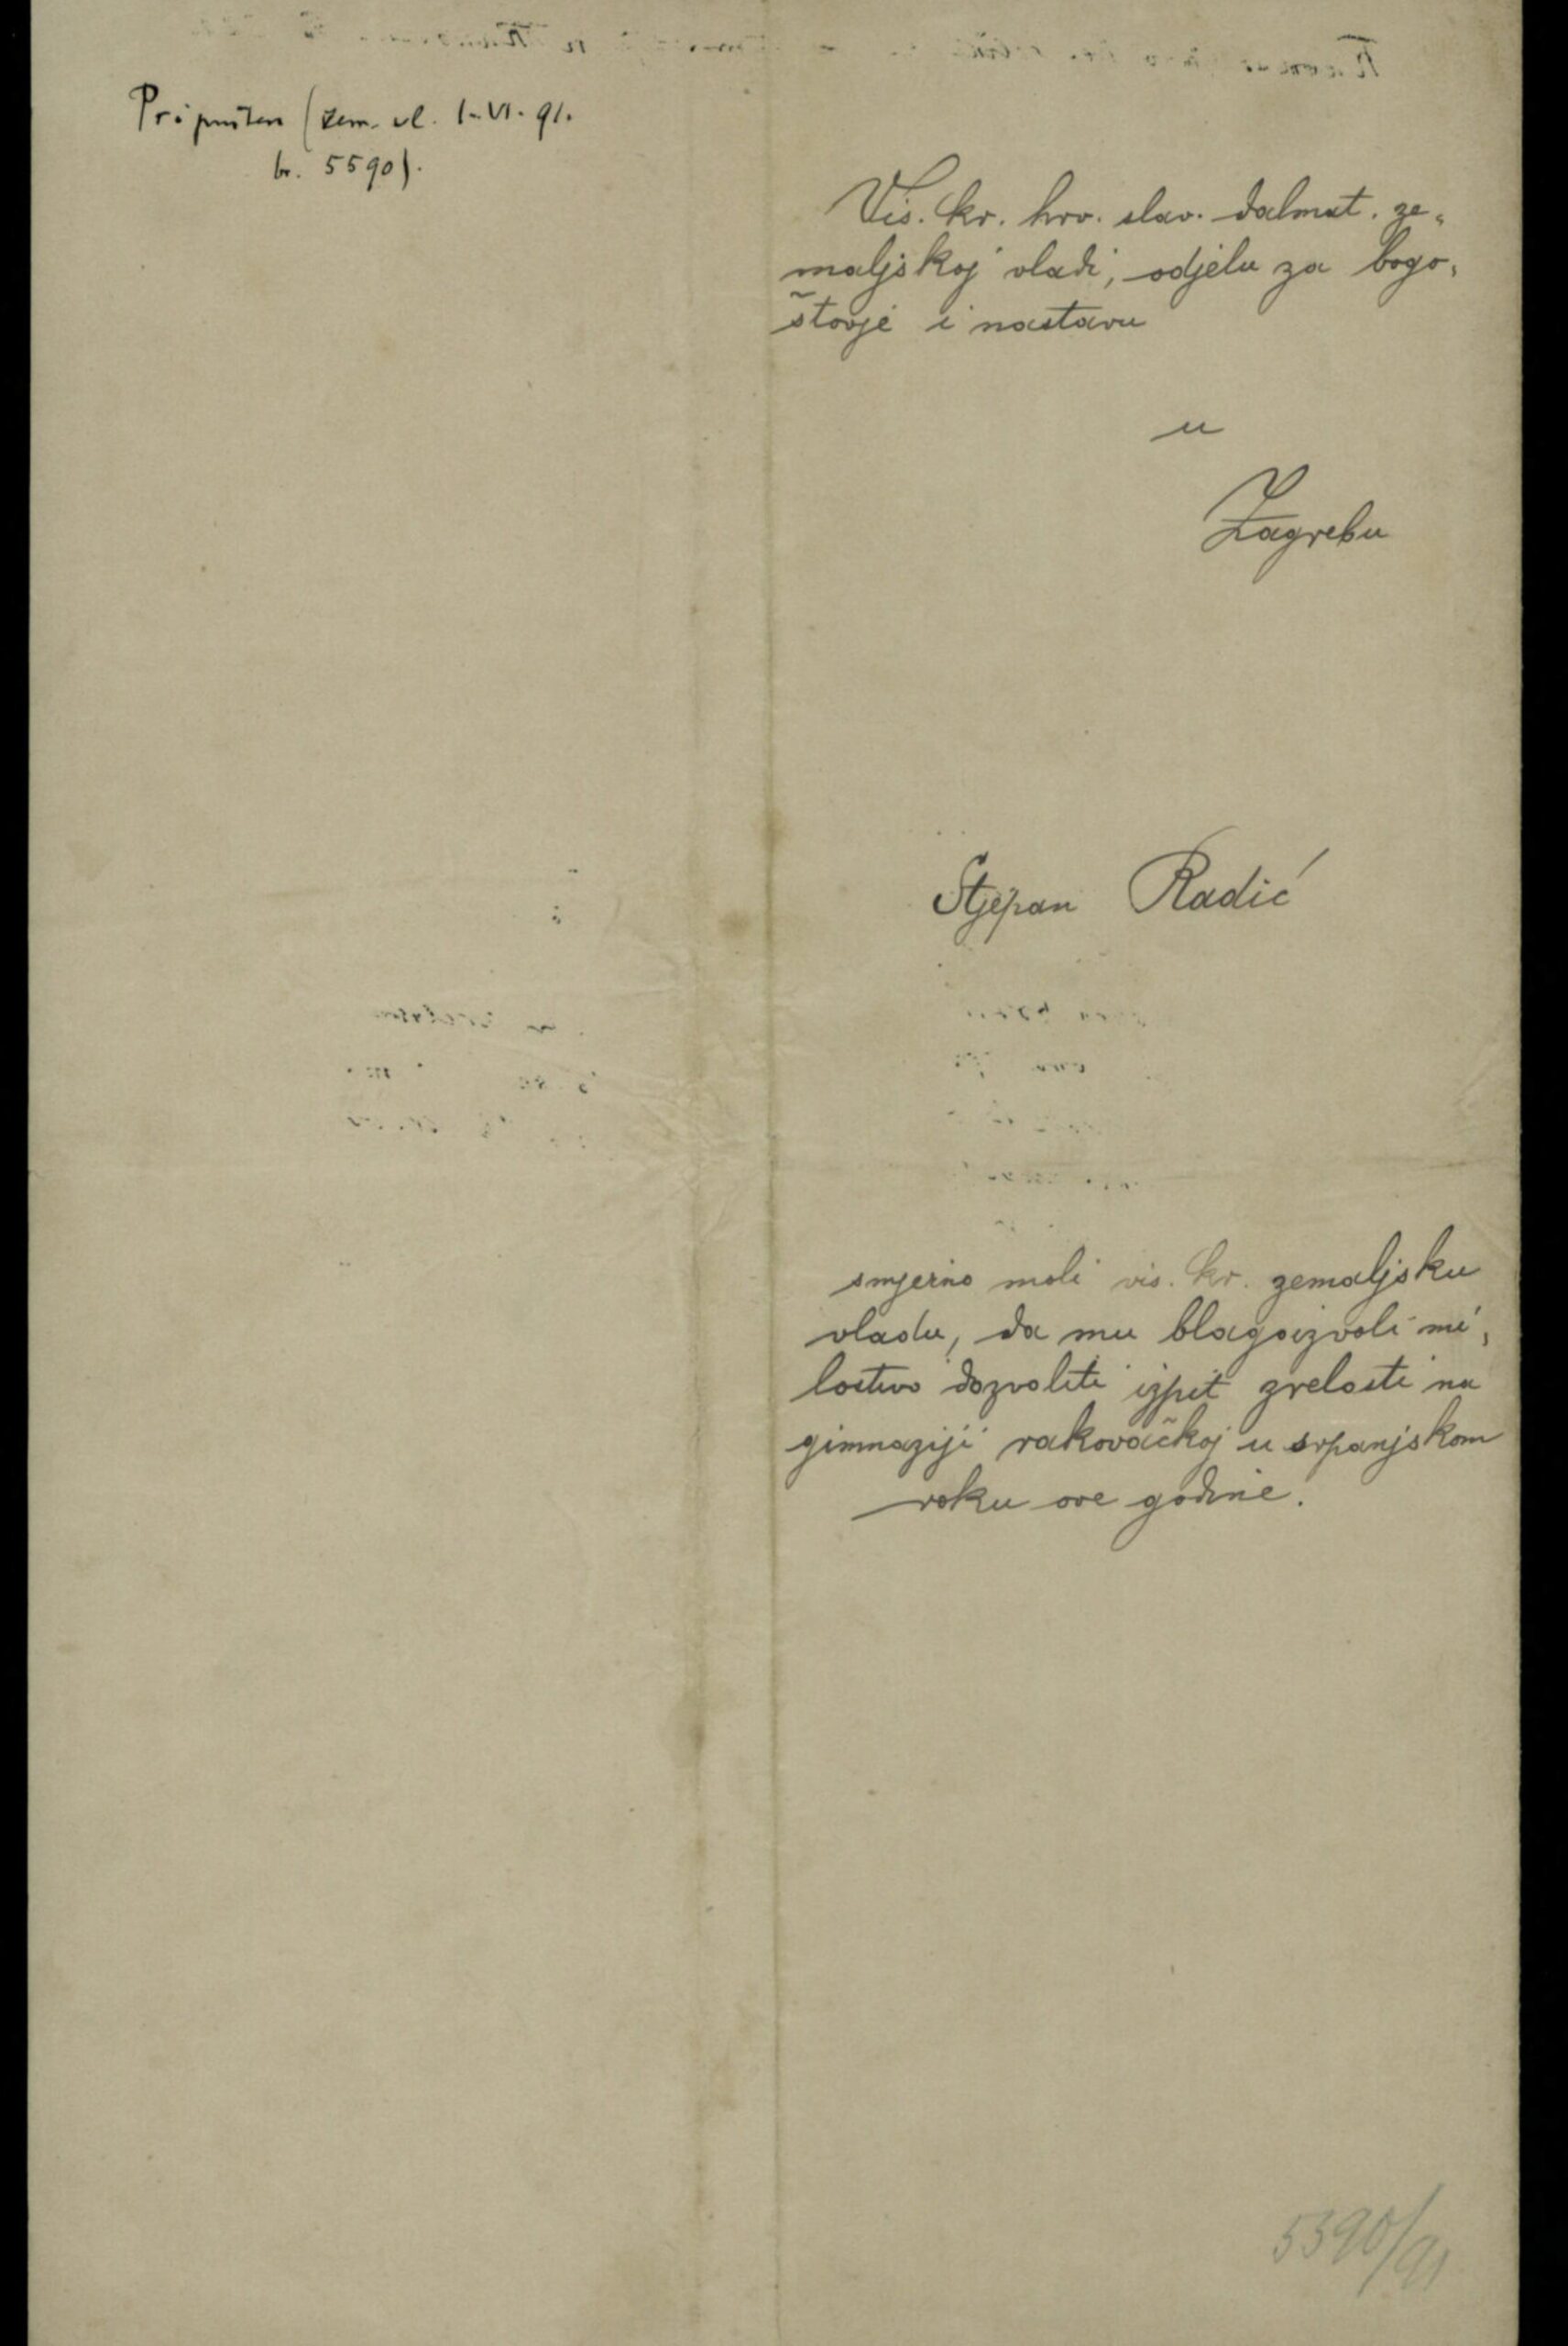 Pripušten (zem. vl. 1-VI-91.
br. 5590).
Vis. kr. hrv. slav. dalmat. ze„
maljskoj vladi, odjelu za bogo„
štovje i nastavu
u
Zagrebu
Stjepan Radić
smjerno moli vis. kr. zemaljsku
vladu, da mu blagoizvoli mi„
lostivo dozvoliti izpit zrelosti na
gimnaziji rakovačkoj u srpanjskom
roku ove godine.
5390/91